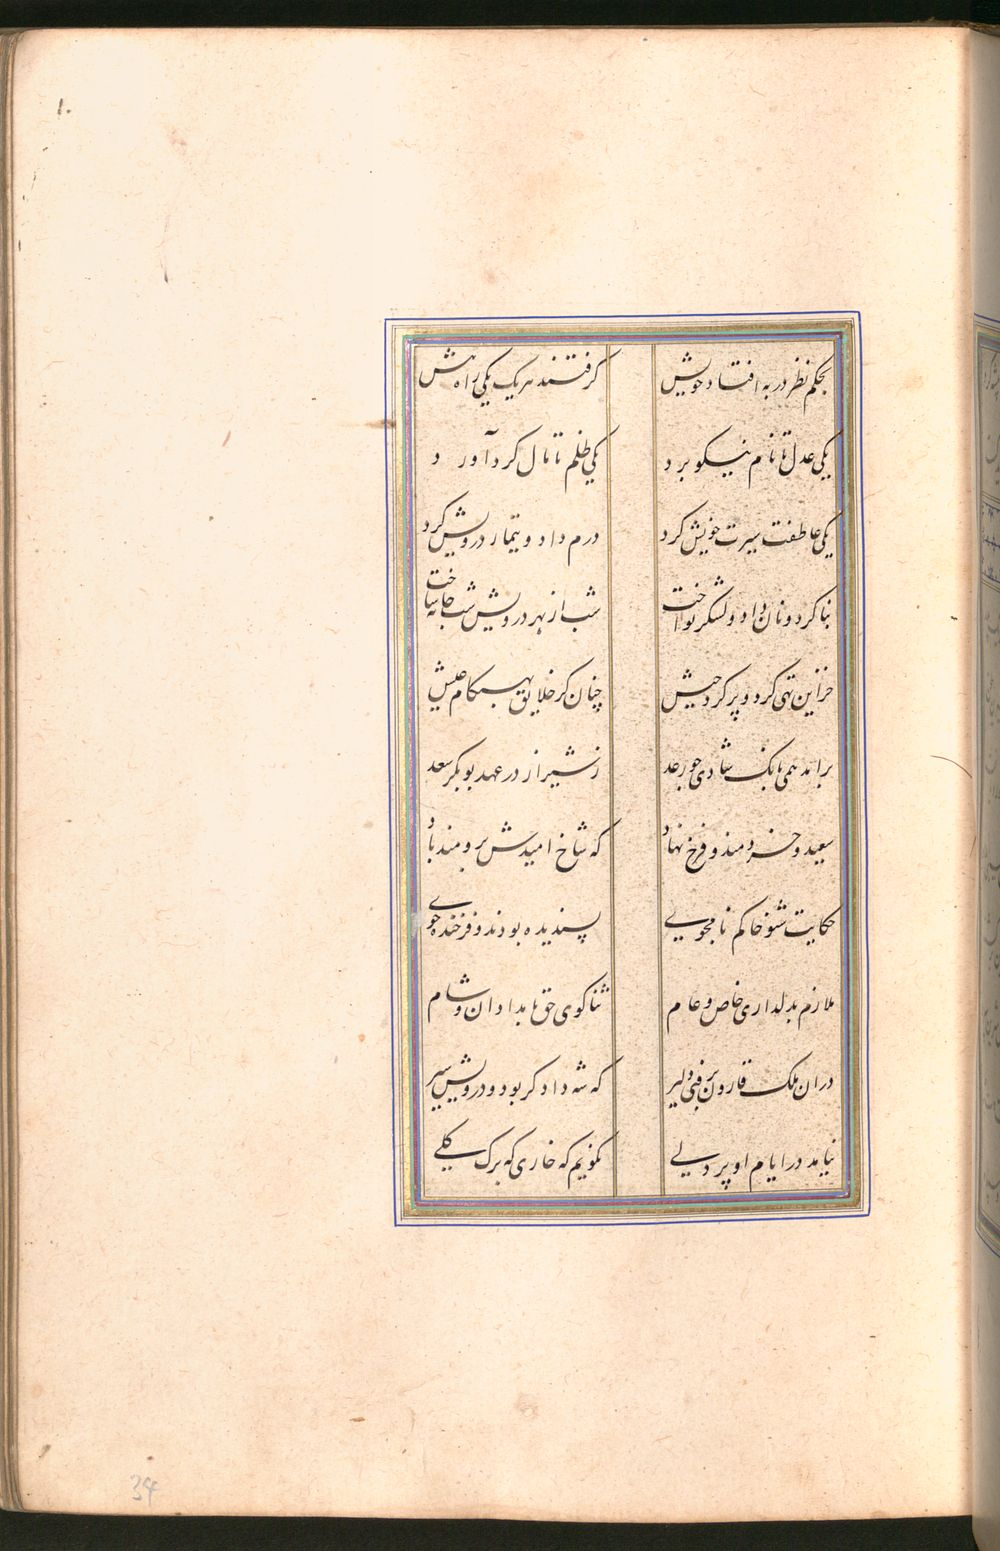 ۱۰
بحکم نظر در به افتاد خویش
گرفتند هریک یکی راه پیش
یکی عدل تا نام نیکو برد
یکی ظلم تا مال گرد آورد
یکی عاطفت سیرت خویش کرد
درم داد و تیمار درویش کرد
بنا کرد و نان داد و لشکر نواخت
شب از بهر درویش شب خانه ساخت
خزاین تهی کرد و پر کرد جیش
چنان کز خلایق بهنگام عیش
برامد همی بانک شادی چو رعد
ز شیراز در عهد بوبکر سعد
سعید و خردمند و فرخ نهاد
که شاخ امیدش برومند باد
حکایت شنو خاکم نامجوی
پسندیده بودند و فرخنده خوی
ملازم بدلداری خاص و عام
ثناگوی حق بامدادان و شام
دران ملک قارون برفتی دلیر
که شه دادگر بود و درویش سیر
نیامد در ایام او بر دلی
نگویم که خاری که برک گلی
34